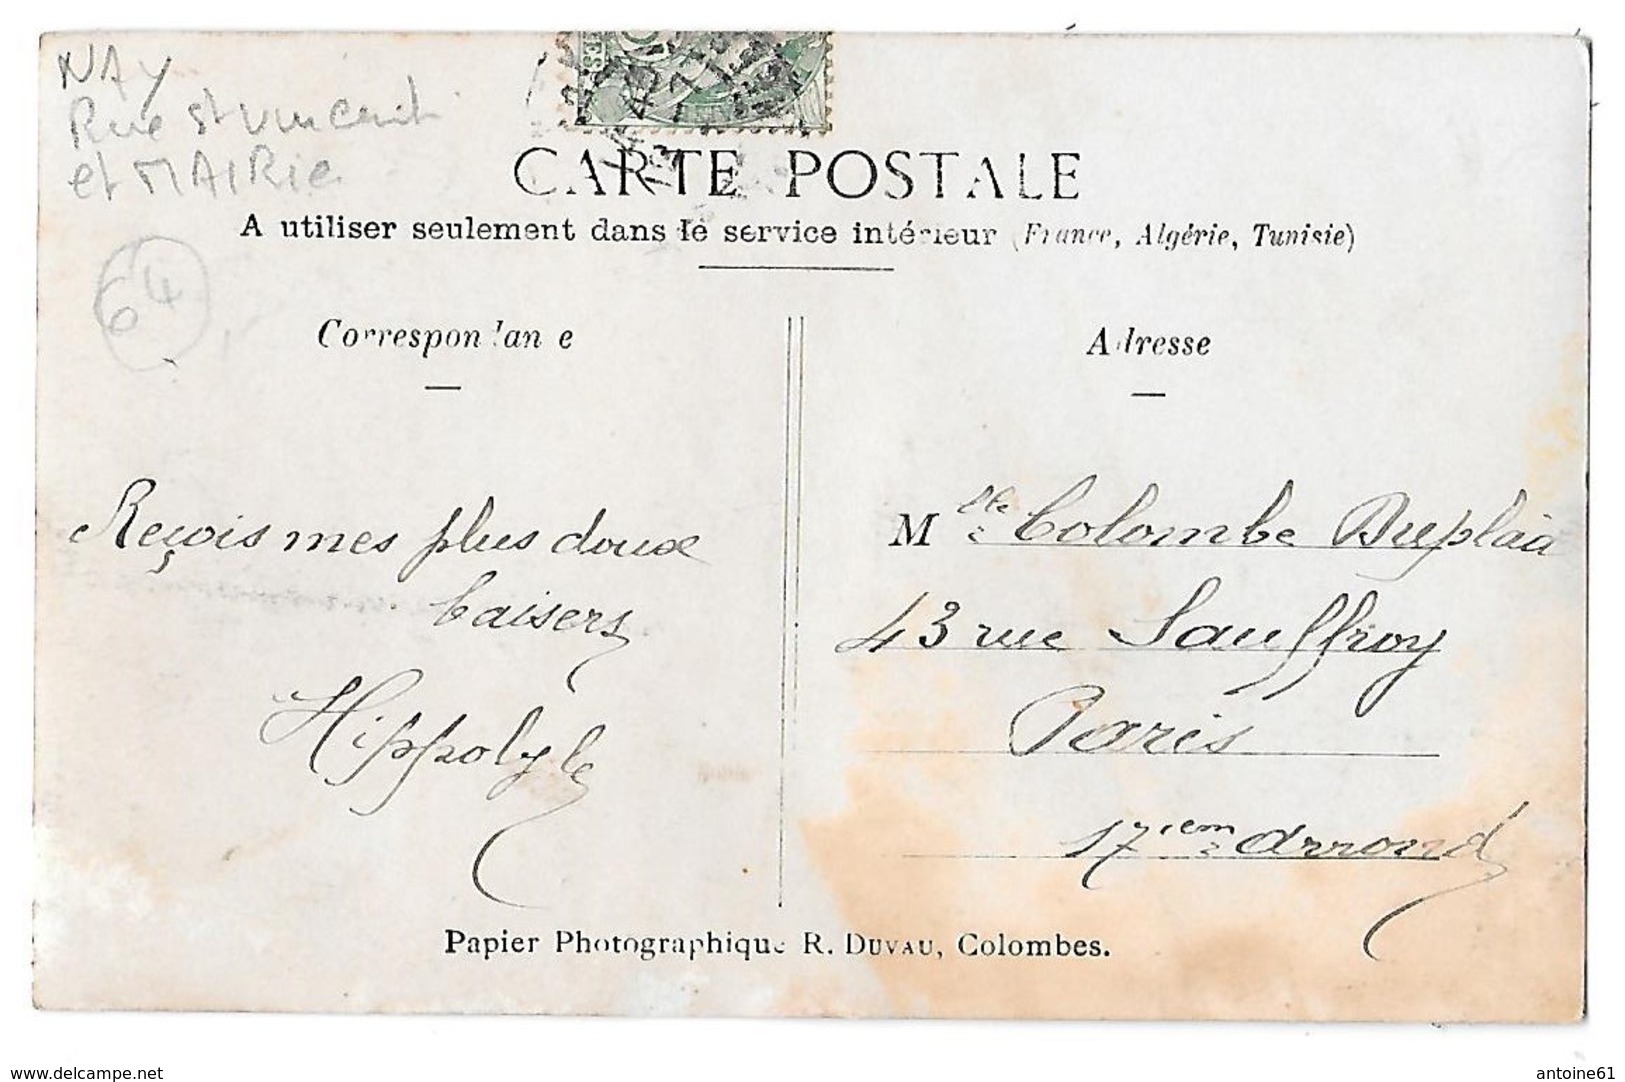 NAY
Rue St Vincent
et MAIRie
64
CARTE POSTALE
A utiliser seulement dans le service intérieur (France, Algérie, Tunisie)
Correspondance
Adresse
Reçois mes plus doux
baisers
Hippolyte
Mlle Colombe Duplaà
43 rue Sauffroy
Paris
17iem arrond
Papier Photographique R. DUVAU, Colombes.
www.delcampe.net
antoine61